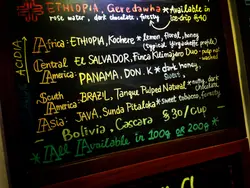 ETHIOPIA, Geredawha *Available in
rose water, dark chocolate, forestry ice-drip $40
ACIDIC
Africa: ETHIOPIA, Kochere * lemon, floral, honey
(typical Yirgacheffe profile)
Central America: EL SALVADOR, Finca Kilimanjaro Duo: pulp nat washed
PANAMA, DON. K * dark honey,
South America: BRAZIL, Tangue Pulped Natural * nutty, dark chocolate
Asia: JAVA, Sunda Pitaloka * sweet tobacco, forestry
Bolivia, Cascara $30/cup
*All Available in 100g or 200g*